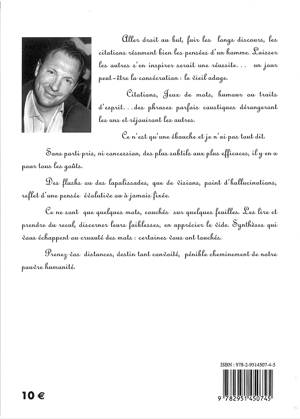 Aller droit au but, fuir les longs discours, les
citations résument bien les pensées d'un homme. Laisser
les autres s'en inspirer serait une réussite... un jour
peut-être la consécration : le vieil adage.
Citations, Jeux de mots, humour ou traits
d'esprit...des phrases parfois caustiques dérangeront
les uns et réjouiront les autres.
Ce n'est qu'une ébauche et je n'ai pas tout dit.
Sans parti-pris, ni concession, des plus subtils aux plus efficaces, il y en a
pour tous les goûts.
Des flashs ou des lapalissades, que de visions, point d'hallucinations,
reflet d'une pensée évolutive ou à jamais fixée.
Ce ne sont que quelques mots, couchés sur quelques feuilles. Les lire et
prendre du recul, discerner leurs faiblesses, en apprécier le vide. Synthèses qui
vous échappent ou cruauté des mots : certaines vous ont touchés.
Prenez vos distances, destin tant convoité, pénible cheminement de notre
pauvre humanité.
10 €
ISBN : 978-2-9514507-4-5
9 782951 450745